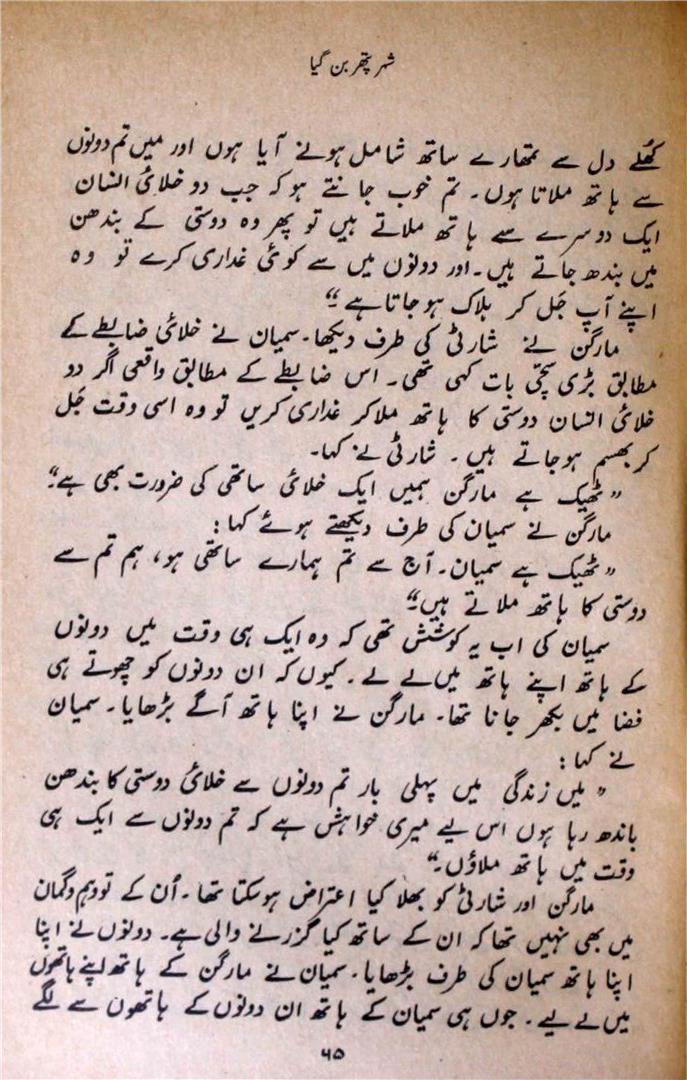 شہر پتھر بن گیا
کُھلے دل سے تمھارے ساتھ شامل ہونے آیا ہوں اور میں تم دونوں
سے ہاتھ ملاتا ہوں۔ تم خوب جانتے ہو کہ جب دو خلائی انسان
ایک دوسرے سے ہاتھ ملاتے ہیں تو پھر وہ دوستی کے بندھن
میں بندھ جاتے ہیں۔ اور دونوں میں سے کوئی غداری کرے تو وہ
اپنے آپ جَل کر ہلاک ہو جاتا ہے۔“
مارگن نے شارٹی کی طرف دیکھا۔ سمیان نے خلائی ضابطے کے
مطابق بڑی سچّی بات کہی تھی۔ اس ضابطے کے مطابق واقعی اگر دو
خلائی انسان دوستی کا ہاتھ ملا کر غداری کریں تو وہ اسی وقت جَل
کر بھسم ہو جاتے ہیں۔ شارٹی نے کہا۔
”ٹھیک ہے مارگن ہمیں ایک خلائی ساتھی کی ضرورت بھی ہے۔“
مارگن نے سمیان کی طرف دیکھتے ہوئے کہا:
”ٹھیک ہے سمیان۔ آج سے تم ہمارے ساتھی ہو، ہم تم سے
دوستی کا ہاتھ ملاتے ہیں۔“
سمیان کی اب یہ کوشش تھی کہ وہ ایک ہی وقت میں دونوں
کے ہاتھ اپنے ہاتھ میں لے لے۔ کیوں کہ ان دونوں کو چھوتے ہی
فضا میں بکھر جانا تھا۔ مارگن نے اپنا ہاتھ آگے بڑھایا۔ سمیان
نے کہا:
”میں زندگی میں پہلی بار تم دونوں سے خلائی دوستی کا بندھن
باندھ رہا ہوں اس لیے میری خواہش ہے کہ تم دونوں سے ایک ہی
وقت میں ہاتھ ملاؤں۔“
مارگن اور شارٹی کو بھلا کیا اعتراض ہو سکتا تھا۔ اُن کے تو وہم و گمان
میں بھی نہیں تھا کہ ان کے ساتھ کیا گزرنے والی ہے۔ دونوں نے اپنا
اپنا ہاتھ سمیان کی طرف بڑھایا۔ سمیان نے مارگن کے ہاتھ اپنے ہاتھوں
میں لے لیے۔ جوں ہی سمیان کے ہاتھ ان دونوں کے ہاتھوں سے لگے
۶۵